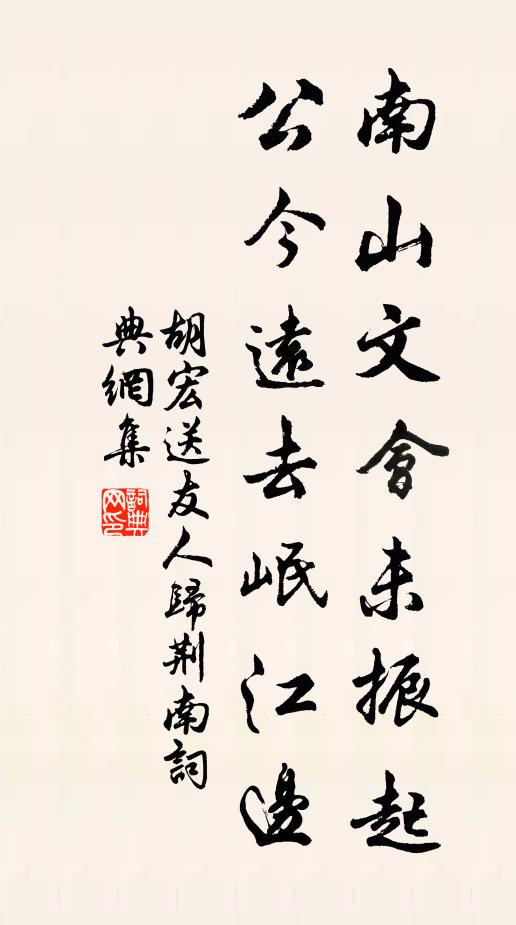 南山文會未振起
公今遠去岷江邊
胡宏送友人歸荆南詞
典網集
詞典网印